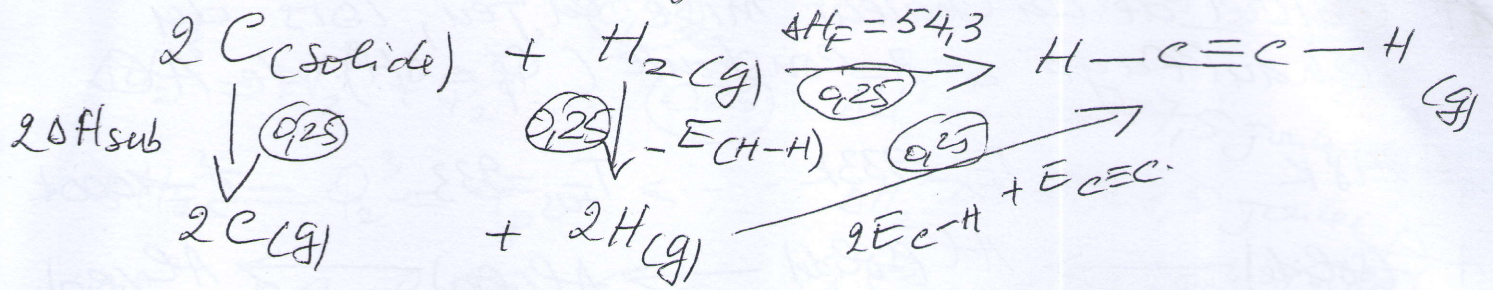 2 C (solide) + H2 (g) ΔHf = 54,3 H — C ≡ C — H (g)
0,25
2ΔHsub 0,25 0,25 - E(H-H) 0,25
2 C(g) + 2H(g) 2E C-H + E C≡C.